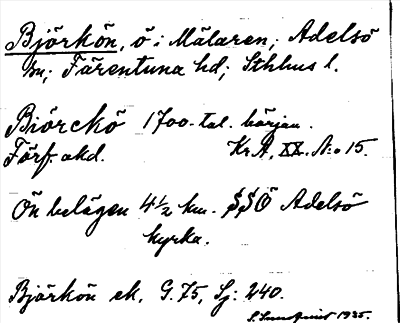 Björkön, ö i Mälaren; Adelsö
sn; Färentuna hd; Sthlms l.
Biörckö 1700-tal. början.
Förf. akd. Kr.A. XX. N:o 15.
Ön belägen 4½ km. SSÖ Adelsö
kyrka.
Björkön ek. G. 75, Sj: 240.
S. Sundquist 1935.